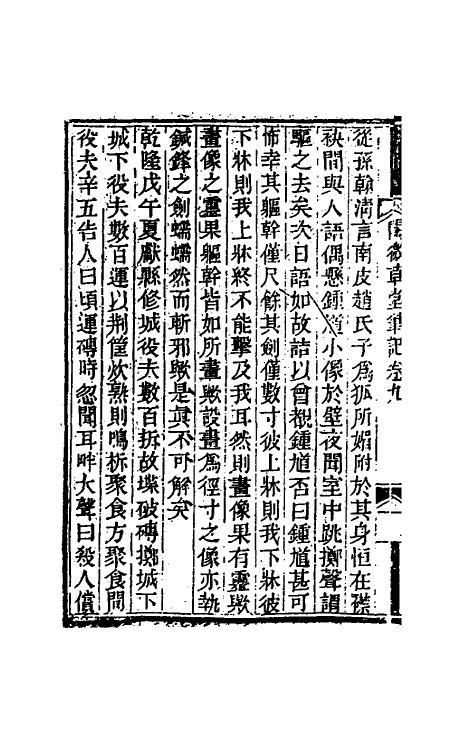 閱微草堂筆記卷九
從孫翰淸言南皮趙氏子爲狐所媚附於其身恒在襟
袂間與人語偶懸鍾馗小像於壁夜聞室中跳擲聲謂
驅之去矣次日語如故詰以曾覩鍾馗否曰鍾馗甚可
怖幸其軀幹僅尺餘其劍僅數寸彼上牀則我下牀彼
下牀則我上牀終不能擊及我耳然則畫像果有靈歟
畫像之靈果軀幹皆如所畫歟設畫爲徑寸之像亦執
鍼鋒之劍蠕蠕然而斬邪歟是眞不可解矣
乾隆戊午夏獻縣修城役夫數百拆故堞破磚擲城下
城下役夫數百運以荆筐炊熟則鳴柝聚食方聚食間
役夫辛五告人曰頃運磚時忽聞耳畔大聲曰殺人償